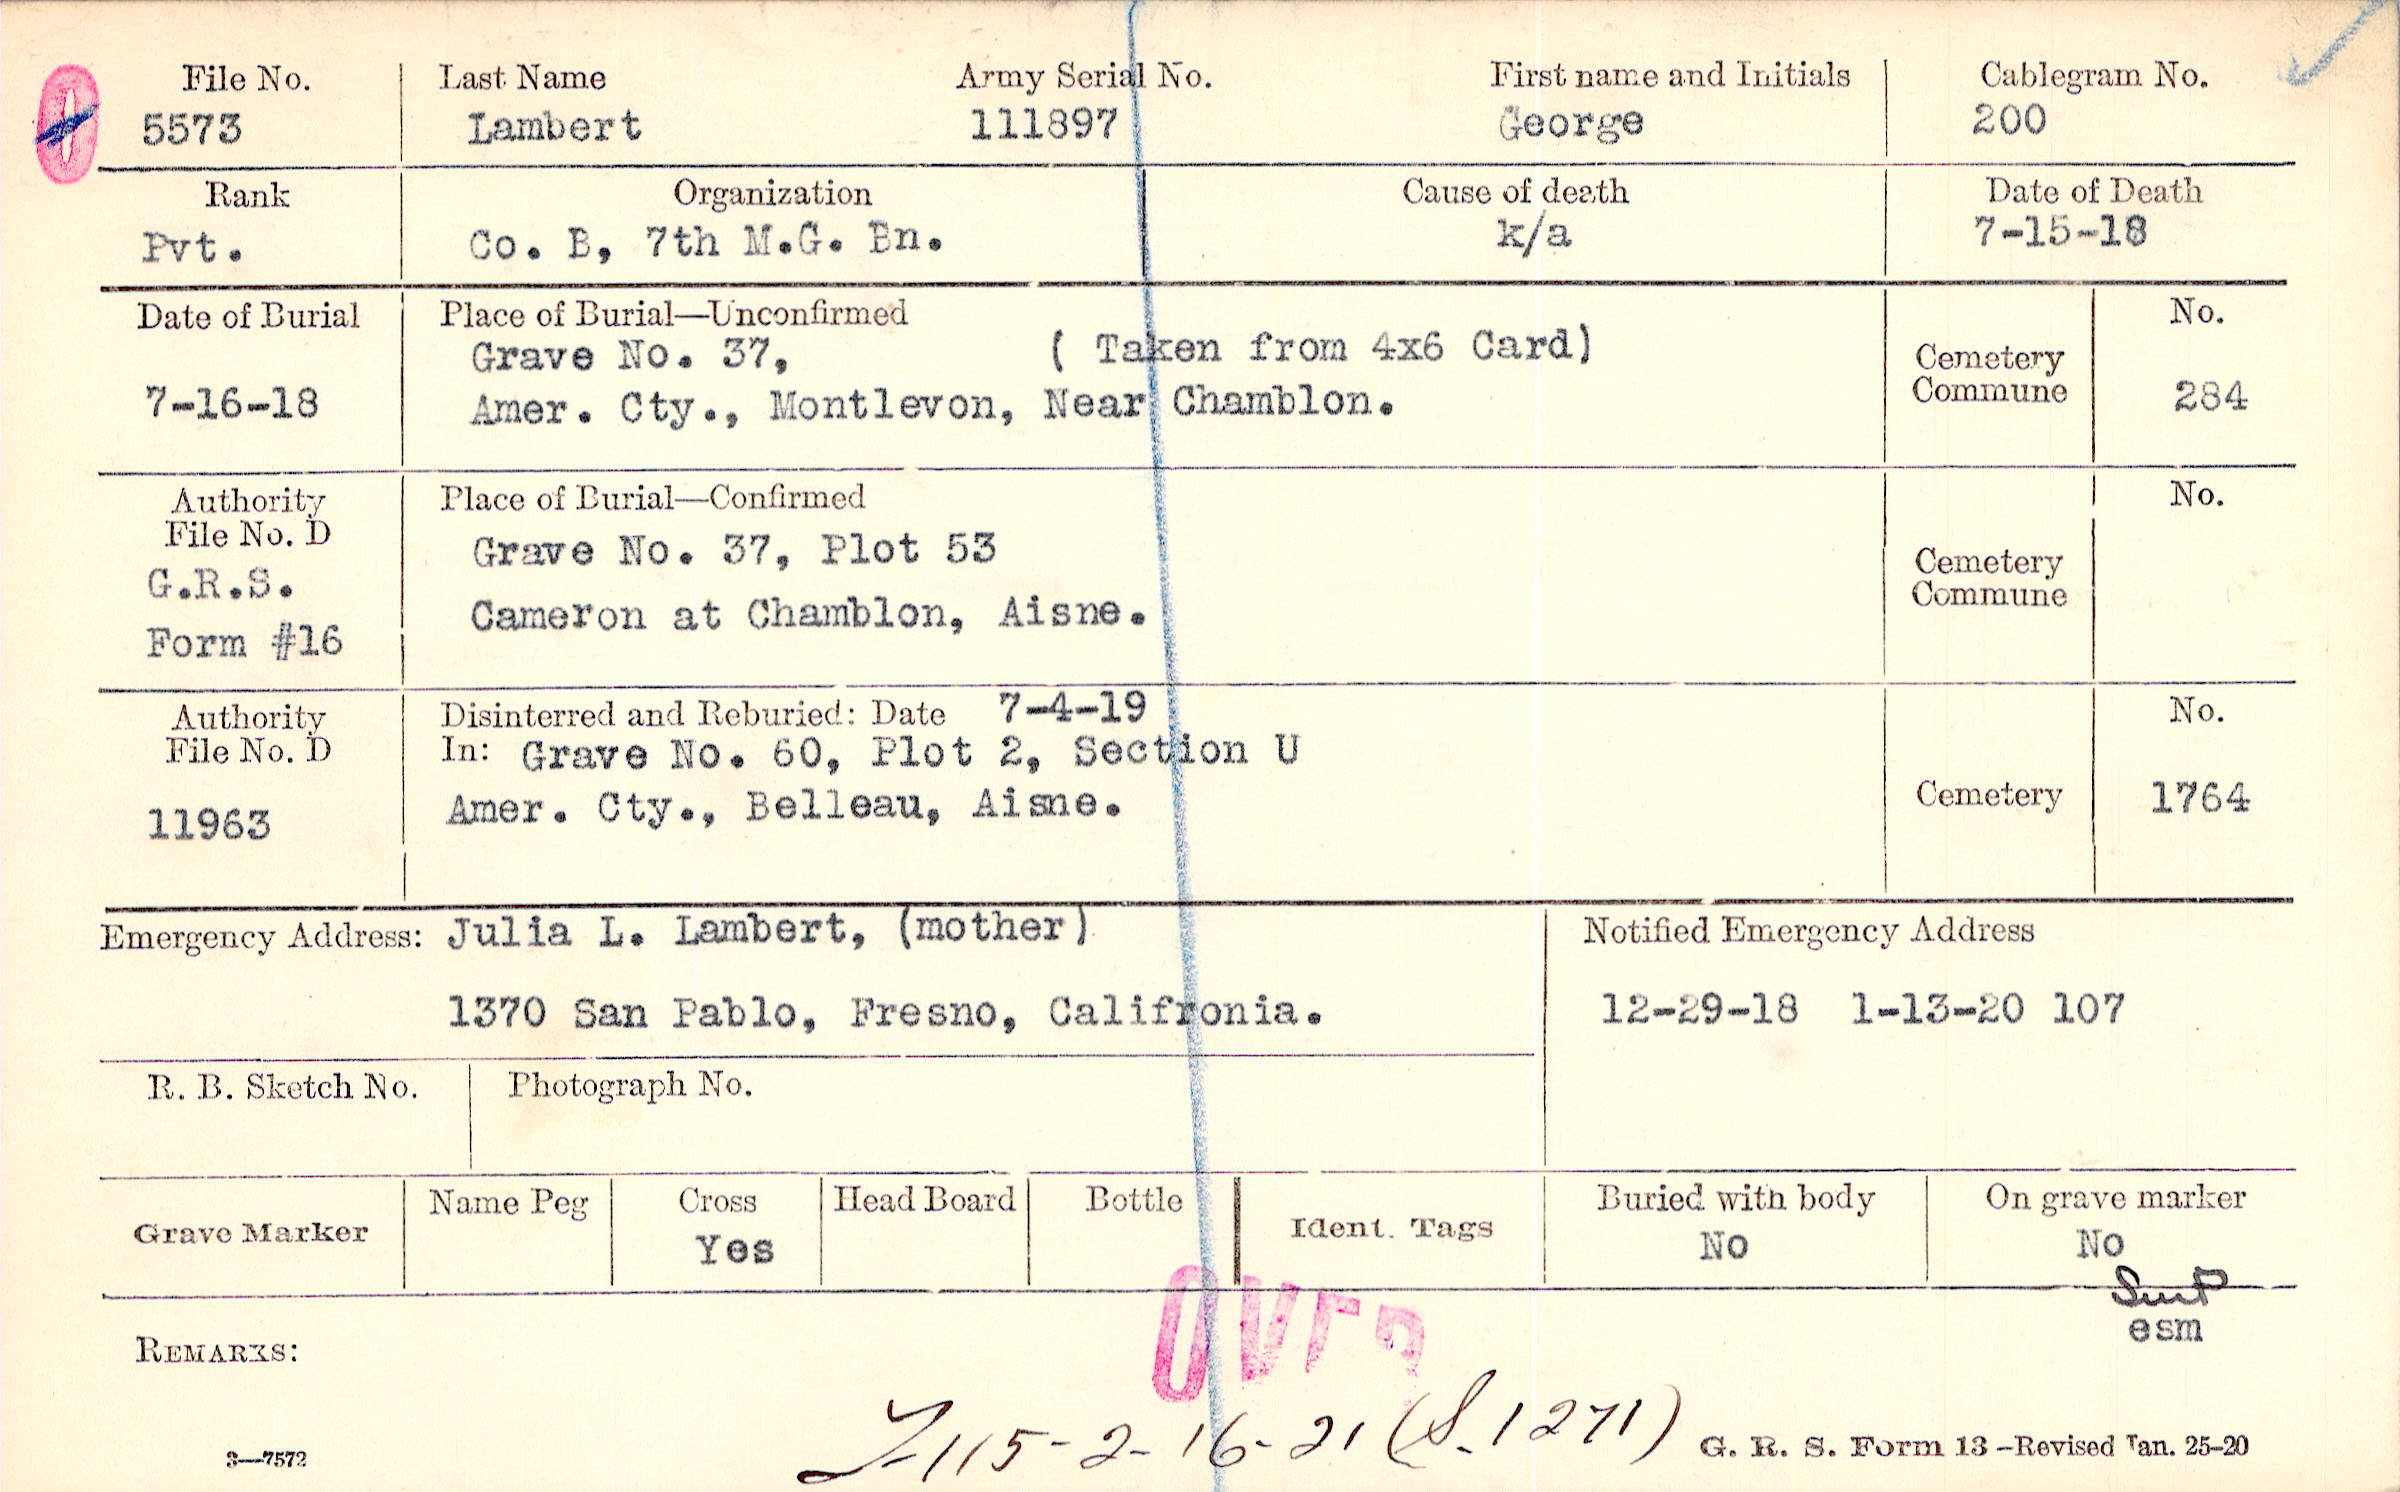 File No. Last Name Army Serial No. First name and Initials Cablegram No.
5573 Lambert 111897 George 200
Rank Organization Cause of death Date of Death
Pvt. Co. B, 7th M.G. Bn. k/a 7-15-18
Date of Burial Place of Burial—Unconfirmed No.
Grave No. 37, ( Taken from 4x6 Card)
Cemetery
7-16-18 Amer. Cty., Montlevon, Near Chamblon. Commune 284
Authority Place of Burial—Confirmed No.
File No. D
Grave No. 37, Plot 53
G.R.S. Cemetery
Cameron at Chamblon, Aisne. Commune
Form #16
Authority Disinterred and Reburied: Date 7-4-19 No.
File No. D In: Grave No. 60, Plot 2, Section U
11963 Amer. Cty., Belleau, Aisne. Cemetery 1764
Emergency Address: Julia L. Lambert, (mother) Notified Emergency Address
1370 San Pablo, Fresno, Califronia. 12-29-18 1-13-20 107
R. B. Sketch No. Photograph No.
Name Peg Cross Head Board Bottle Buried with body On grave marker
Grave Marker Yes Ident. Tags No No
esm
OVER
REMARKS:
115-2-16-21 (S. 1271)
3—7572 G. R. S. Form 13 –Revised Jan. 25–20